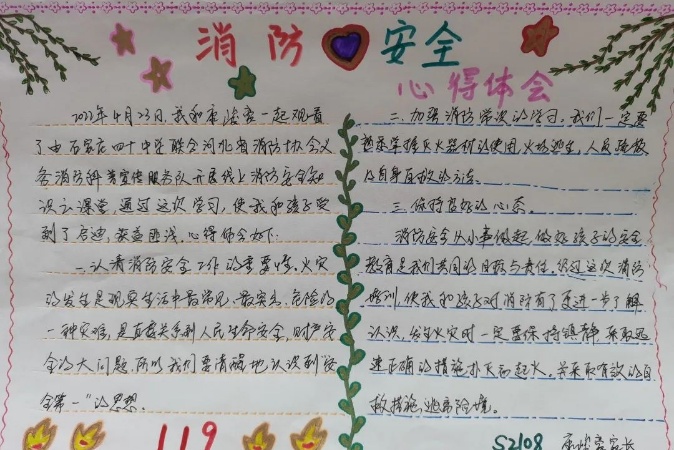 消防安全
心得体会
2022年4月23日,我和康 一起观看
了由石家庄四十中学联合河北省消防协会义
务消防科普宣传服务队开展线上消防安全知
识云课堂,通过这次学习,使我和孩子受
到了启迪,获益匪浅。心得体会如下:
一、认清消防安全工作的重要性。火灾
的发生是现实生活中最常见、最突出、危险的
一种灾难,是直接关系到人民生命安全,财产安
全的大问题。所以我们要清醒地认识到"安
全第一"的思想。
119
二、加强消防常识的学习。我们一定要
熟悉掌握灭火器材的使用,火场逃生,人员疏散
及自身互救的方法。
三、保持良好的心态。
消防安全从小事做起,做好孩子的安全
教育是我们共同的目标与责任。经过这次消防
培训,使我和孩子对消防有了更进一步了解
认识,发生火灾时一定要保持镇静,采取迅
速正确的措施扑灭初起火,并采取有效的自
救措施,逃离险境。
S2108 康 家长